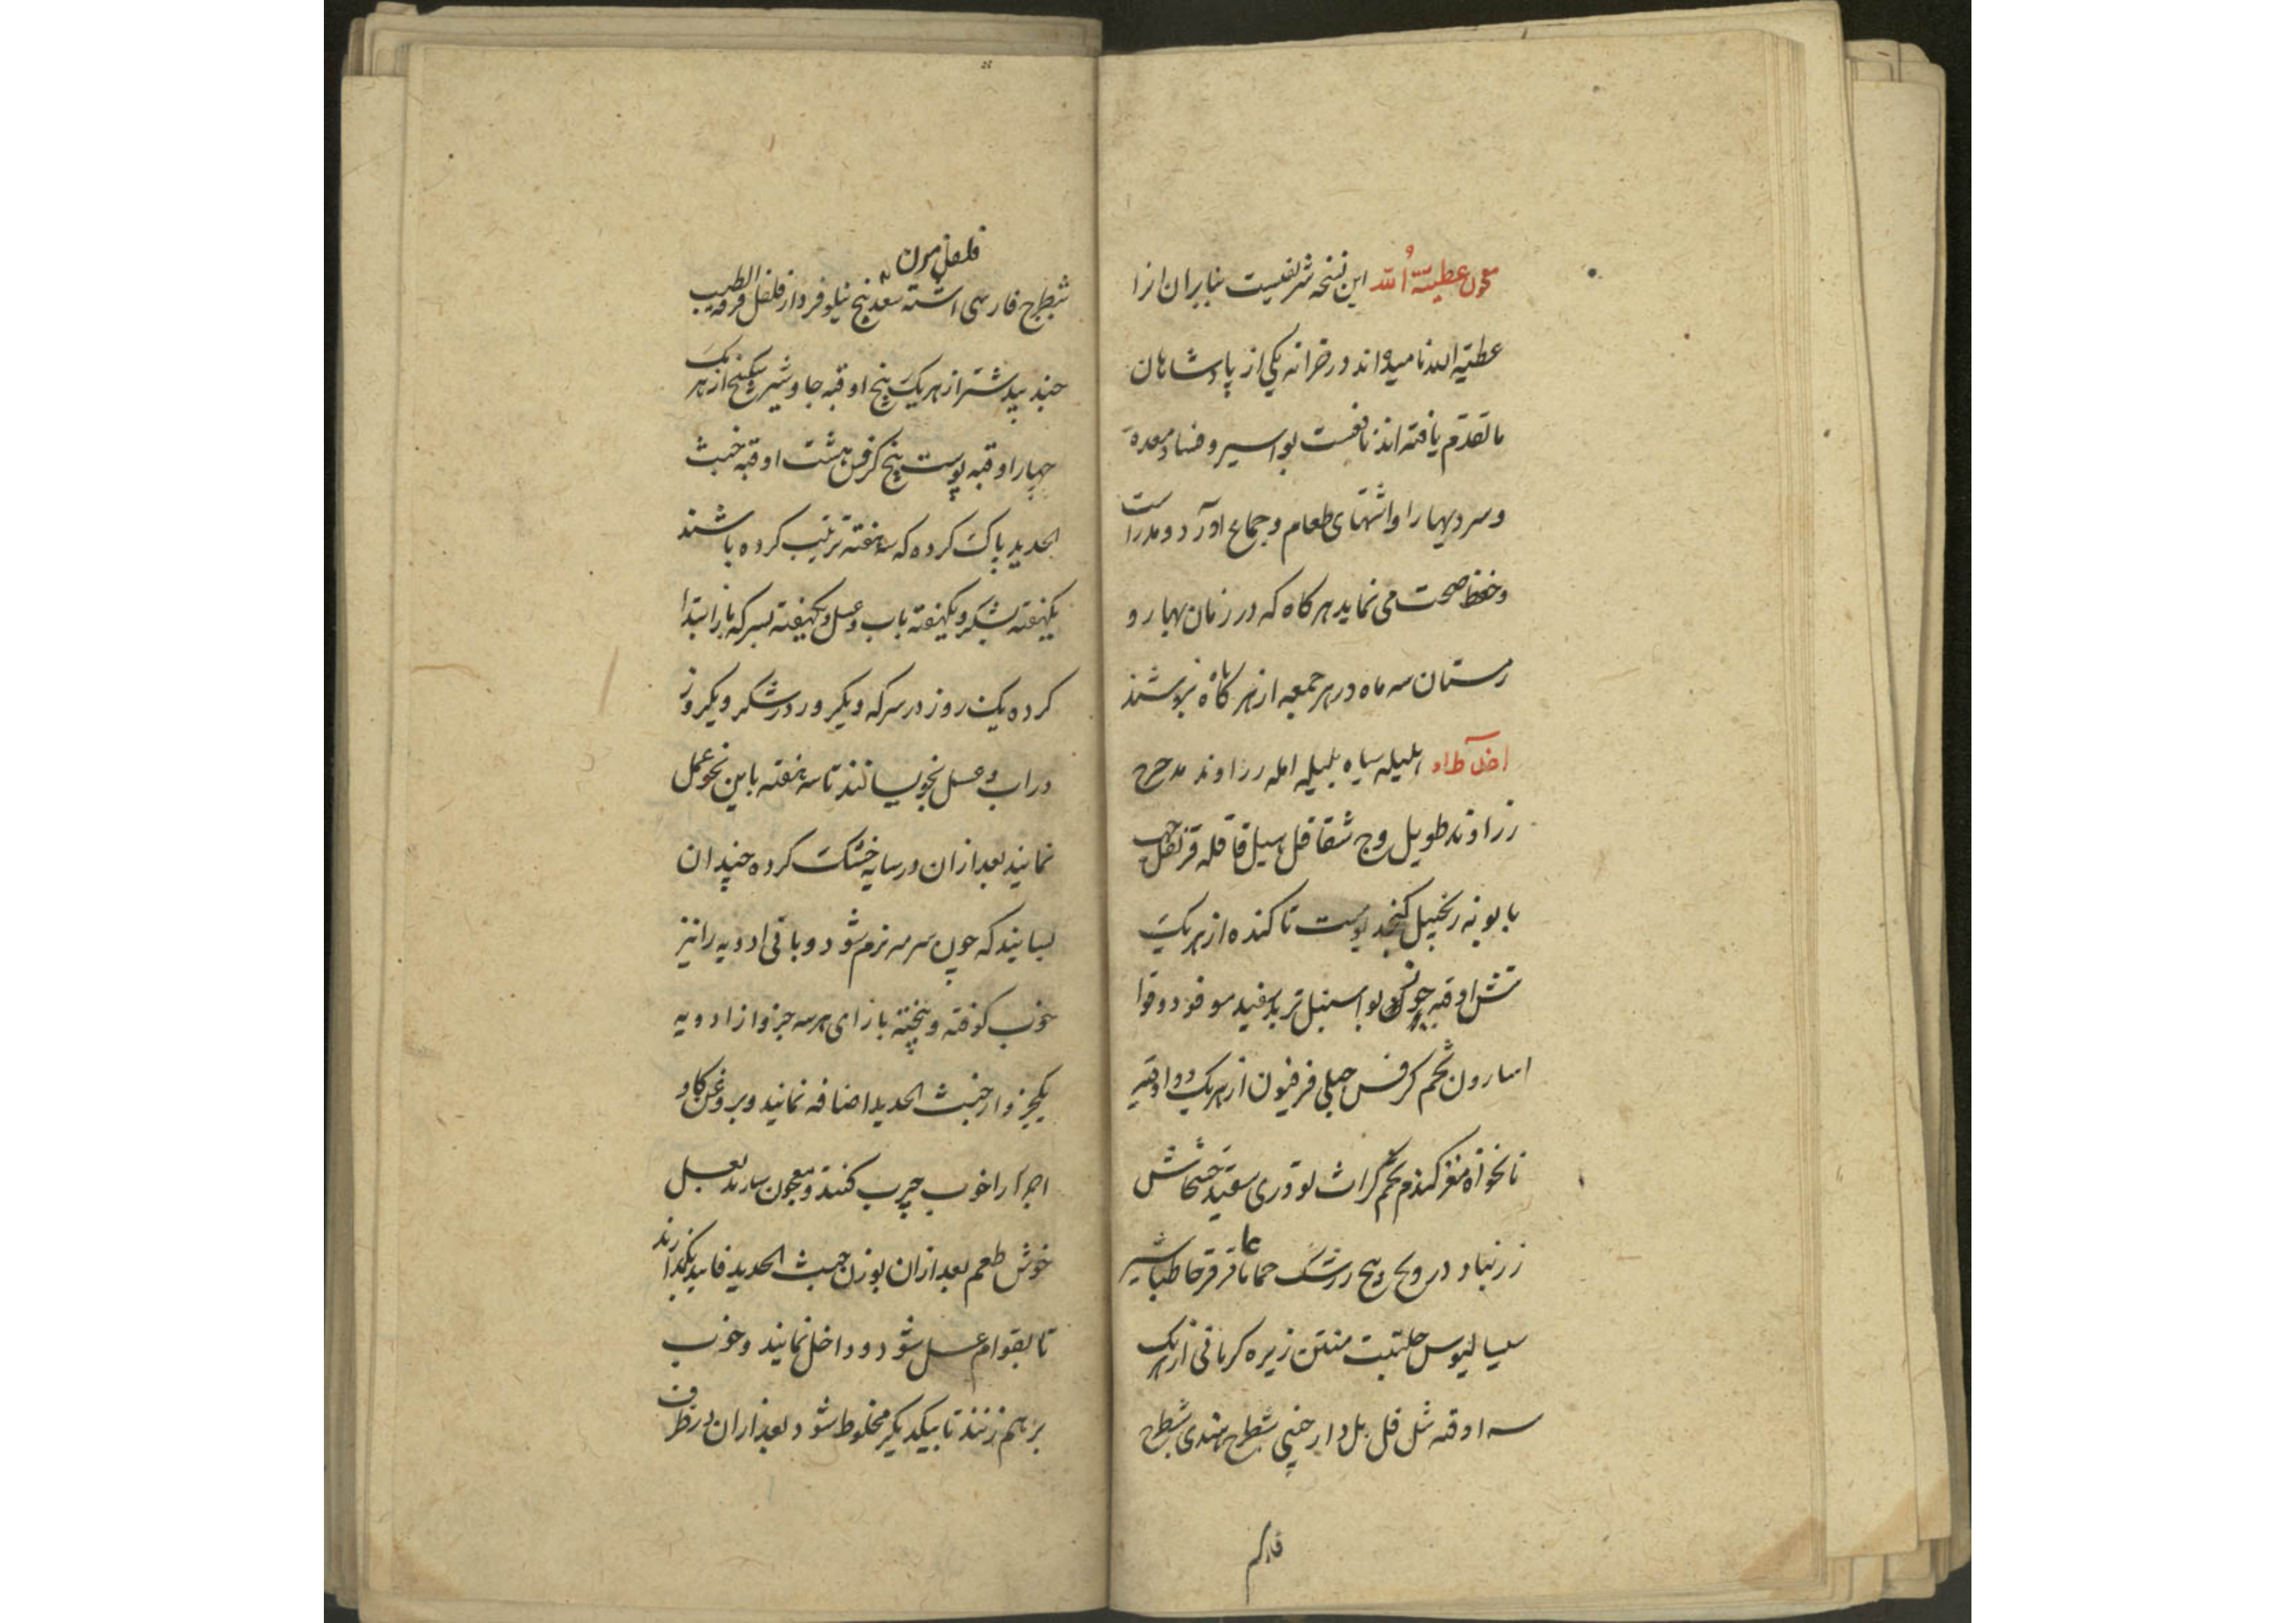 معجون عطیة الله این نسخه شریفیست بنابران انرا
عطیة الله نامیده اند در خزانه یکی از پادشاهان
ما تقدّم یافته اند نافعست بواسیر و فساد معده
و سردیها را و اشتهای طعام و جماع آورد و مدر است
و حفظ صحت می نماید هرگاه که در زمان بهار و
زمستان سه ماه در هر جمعه از هر ماه بنوشند
هلیله سیاه بلیله امله زراوند مدحرج
زراوند طویل وج شقاقل هیل قاقله قرنفل حب
بابونه زنجبیل کنجد پوست تا کنده از هر یک
شش اوقیه جوز بوا سنبل تربد سفید مو فو دوقوا
اسارون تخم کرفس جبلی فرفیون از هر یک دو اوقیه
نانخواه مغز گندم تخم کراث تودری سفید خشخاش
زرنباد درونج وج زرشک حماما عاقرقرحا طباشیر
سیسالیوس حلتیت منتن زیره کرمانی از هر یک
سه اوقیه شل فل بل دارچینی شیطرج هندی شیطرج
فلفل مون
شیطرج فارسی اشنه سعد بیخ نیلوفر دارفلفل قرفة الطیب
جند بیدستر از هر یک پنج اوقیه جاوشیر سکبینج از هر یک
چهار اوقیه پوست بیخ کرفس هشت اوقیه خبث
الحدید پاک کرده که سه هفته ترتیب کرده باشند
یکهفته بشکر و یکهفته باب و عسل و یکهفته بسرکه باز ابتدا
کرده یک روز در سرکه و یکروز در شکر و یکروز
در اب و عسل بخویسانند تا سه هفته باین نحو عمل
نمایند بعد ازان در سایه خشک کرده چندان
بسایند که چون سرمه نرم شود و باقی ادویه را نیز
خوب کوفته و بیخته بازای هر سه جزو از ادویه
یکجزو از خبث الحدید اضافه نمایند و بروغن گاو
اجزا را خوب چرب کنند و معجون سازند بعسل
خوش طعم بعد ازان بوزن خبث الحدید فانید بگدازند
تا بقوام عسل شود و داخل نمایند و خوب
بر هم زنند تا بیکدیگر مخلوط شود بعد ازان در ظرف